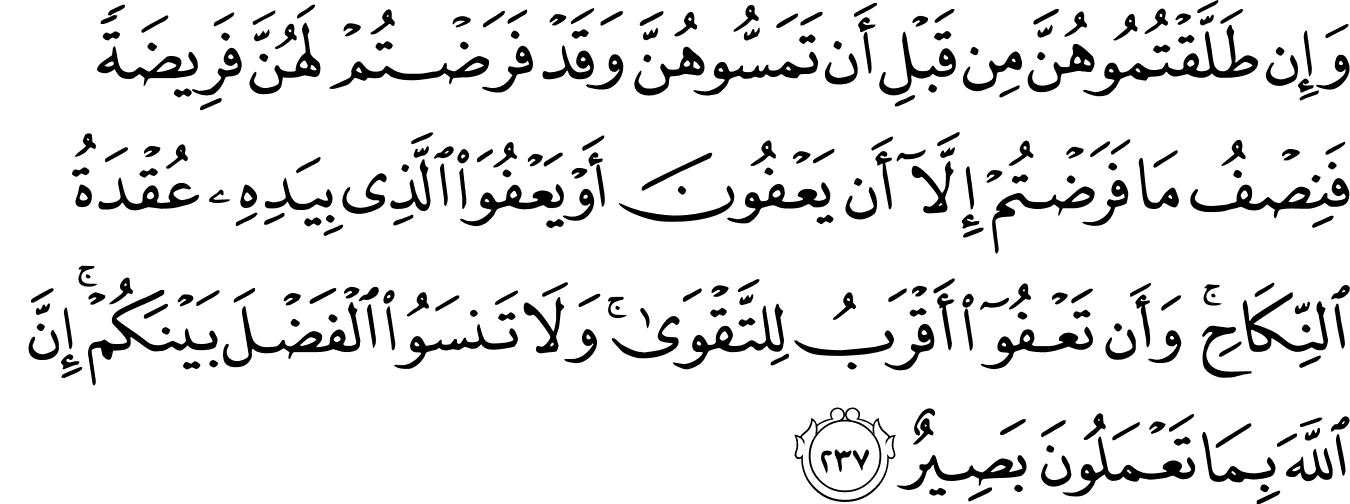 وَإِن طَلَّقۡتُمُوهُنَّ مِن قَبۡلِ أَن تَمَسُّوهُنَّ وَقَدۡ فَرَضۡتُمۡ لَهُنَّ فَرِيضَةٗ
فَنِصۡفُ مَا فَرَضۡتُمۡ إِلَّآ أَن يَعۡفُونَ أَوۡ يَعۡفُوَاْ ٱلَّذِي بِيَدِهِۦ عُقۡدَةُ
ٱلنِّكَاحِۚ وَأَن تَعۡفُوٓاْ أَقۡرَبُ لِلتَّقۡوَىٰۚ وَلَا تَنسَوُاْ ٱلۡفَضۡلَ بَيۡنَكُمۡۚ إِنَّ
ٱللَّهَ بِمَا تَعۡمَلُونَ بَصِيرٌ ٢٣٧